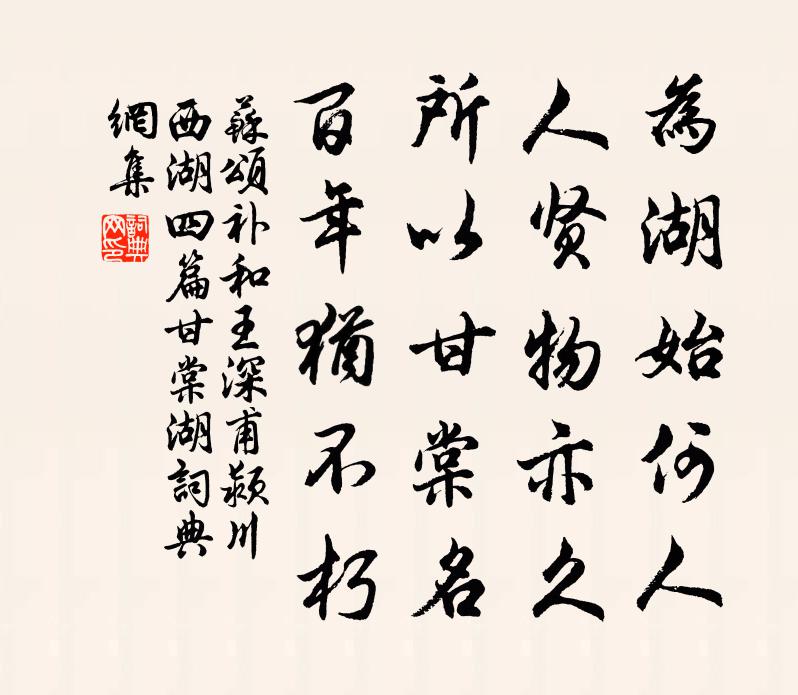 為湖始何人
人贤物亦久
所以甘棠名
百年猶不朽
蘇頌补和王深甫颍川
西湖四篇甘棠湖詞典
網集
詞典
网印